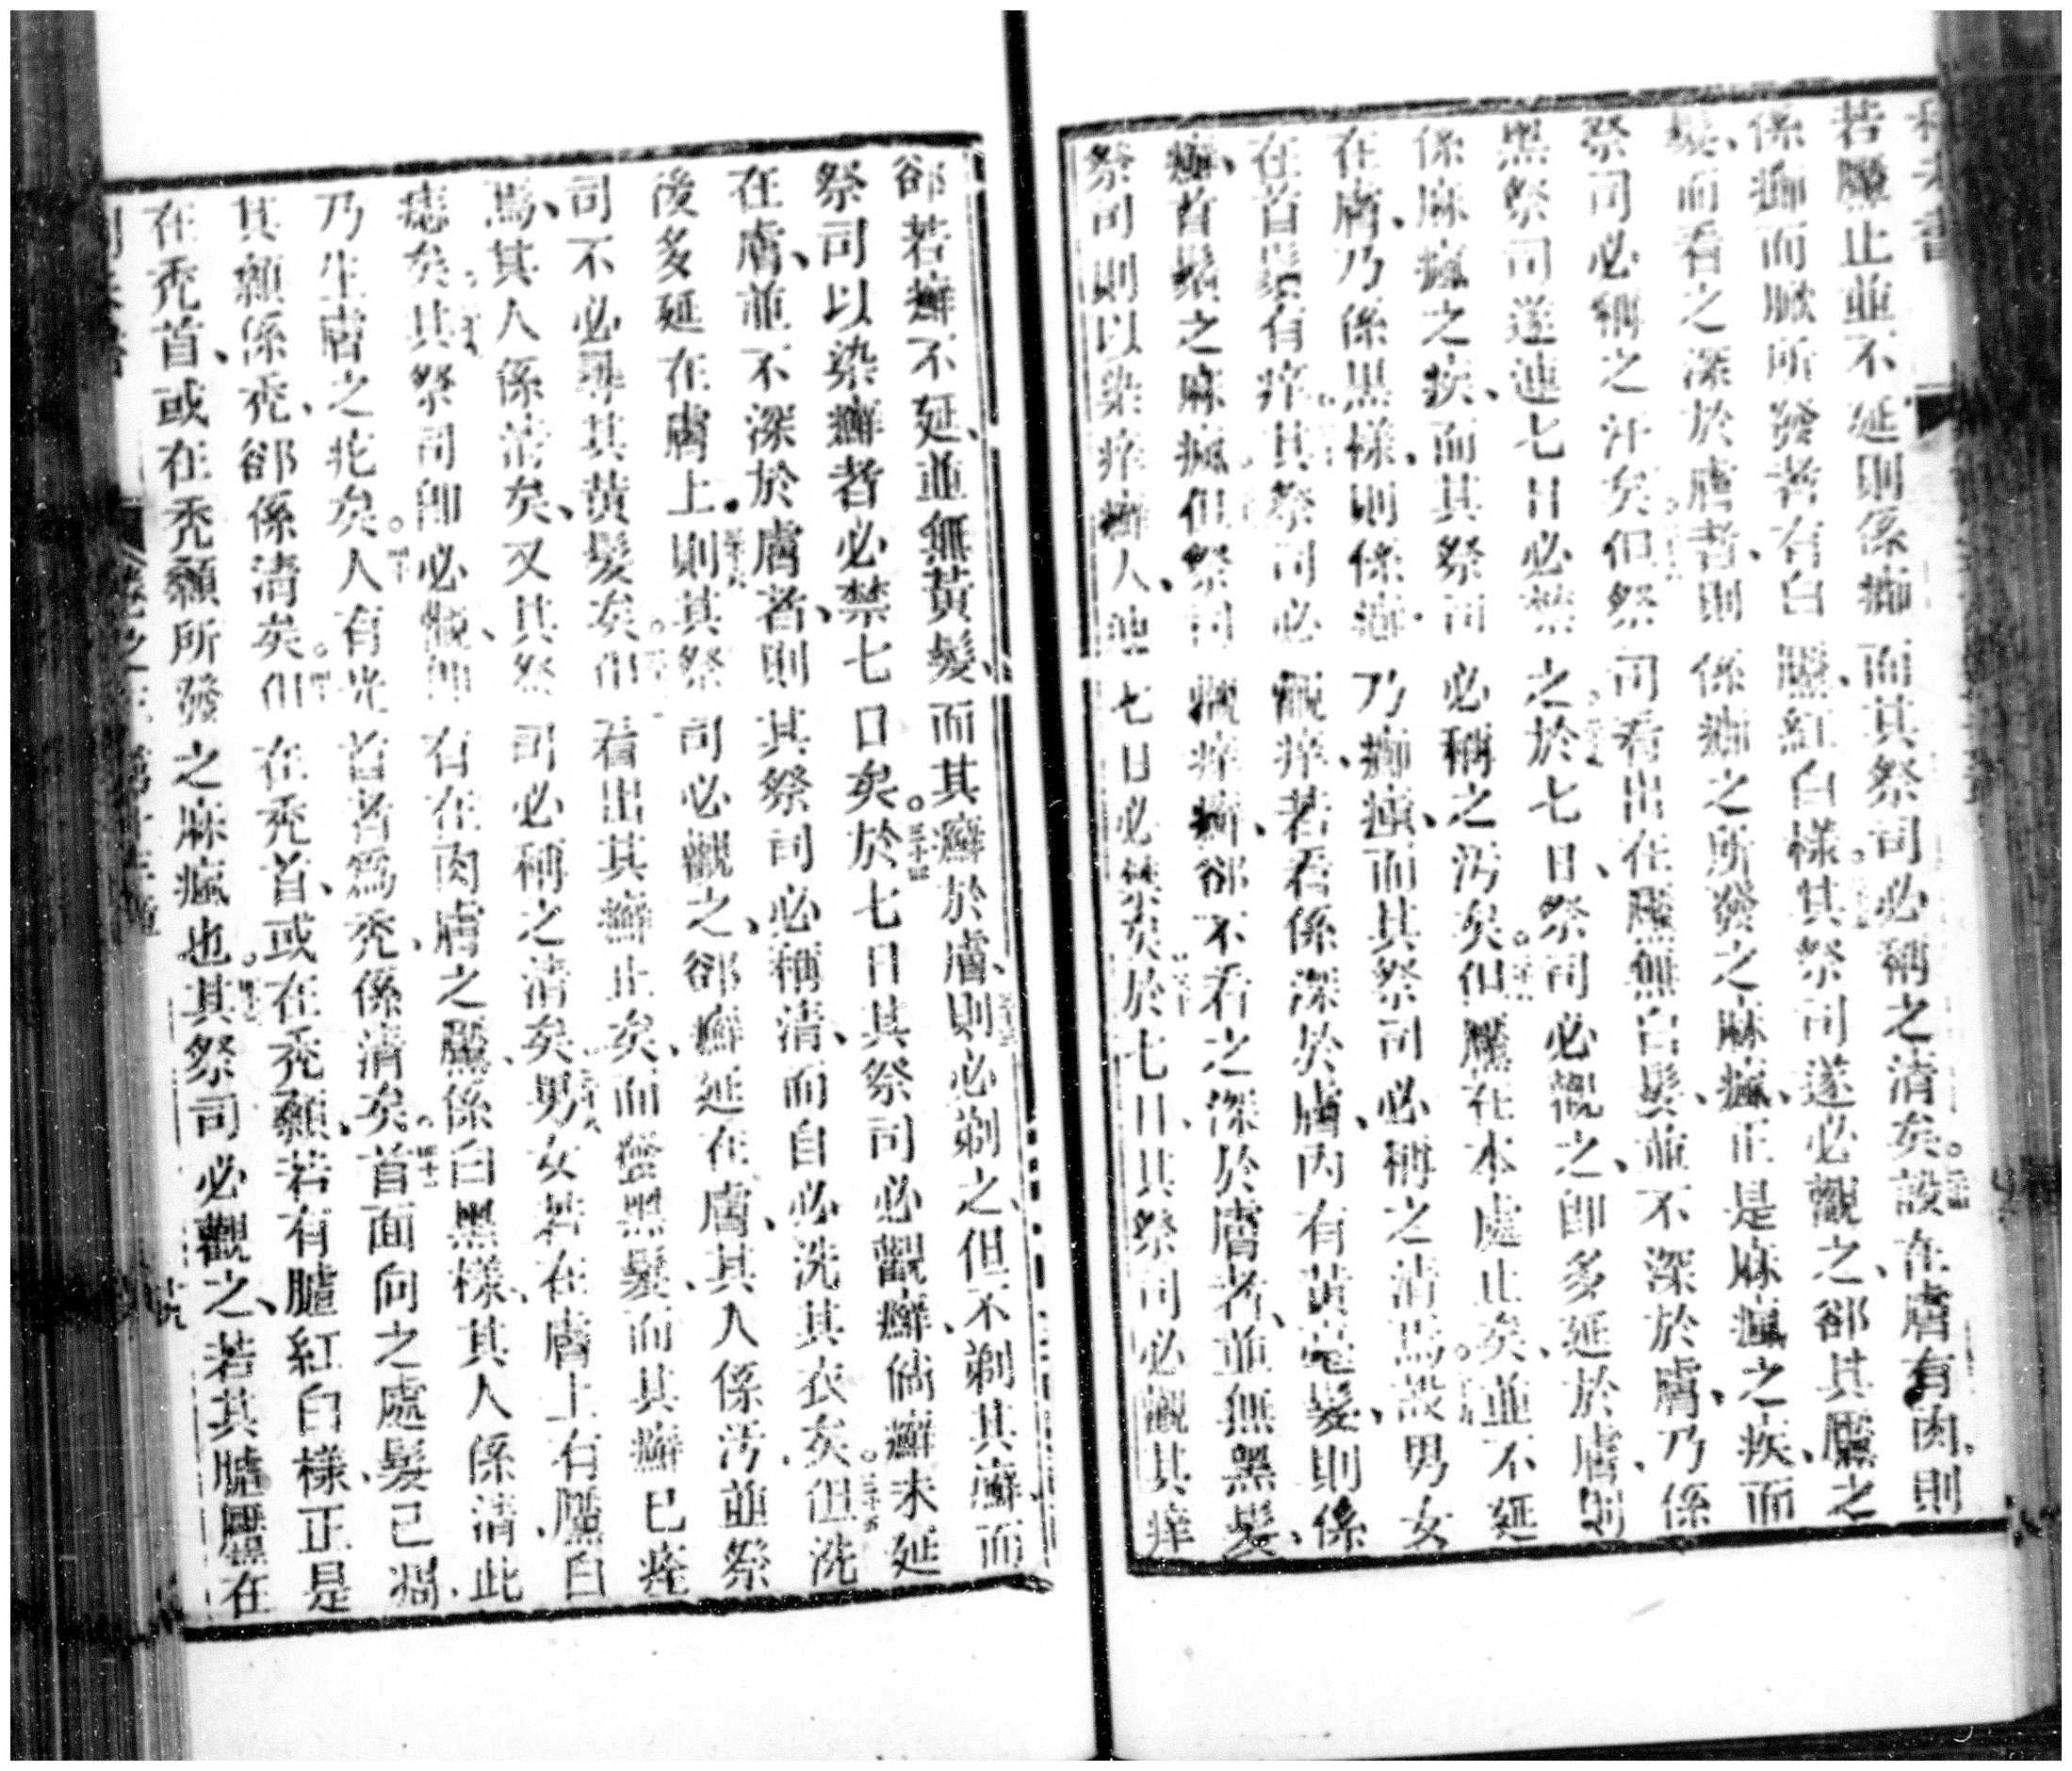 若黶止並不延則係瘢而其祭司必稱之清矣。設在膚有肉、則
係瘢而瘢所發者有白黶、紅白樣。其祭司遂必觀之、郤其黶之
髮、而看之深於膚者、則係瘢之所發之麻瘋、正是麻瘋之疾、而
祭司必稱之汙矣。但祭司看出在黶無白髮、並不深於膚、乃係
黑祭司遂連七日必禁之。於七日、祭司必觀之、即多延於膚、則
係麻瘋之疾、而其祭司必稱之汚矣。但黶在本處止矣、並不延
在膚、乃係黑樣、則係瘢、乃瘢痕、而其祭司必稱之清焉。設男女
在首鬚有痒。其祭司必觀痒、若看係深於膚、內有黃毫髮、則係
癬、首鬚之麻瘋但祭司觀痒癬、郤不看之深於膚者、並無黑髮、
祭司則以染痒癬人、連七日必禁矣。於七日、其祭司必觀其痒
郤若癬不延、並無黃髮、而其癬於膚、則必剃之、但不剃其癬、而
祭司以染癬者必禁七日矣。三十四於七日其祭司必觀癬、倘癬未延
在膚、並不深於膚者、則其祭司必稱清、而自必洗其衣矣。三十五但洗
後多延在膚上。三十六則其祭司必觀之、郤癬延在膚、其人係汚、並祭
司不必尋其黃髮矣。但看出其癬止矣、而發黑髮、而其癬已痊
焉、其人係清矣、又其祭司必稱之清矣。男女若在膚上有黶、白
痣矣。其祭司即必觀、即有在肉膚之黶、係白黑樣、其人係清、此
乃生膚之疕矣。四十人有光首者爲禿、係清矣。四十一首面向之處、髮已凋、
其顙係禿、郤係清矣。但在禿首、或在禿顙、若有臚紅白樣、正是
在禿首、或在禿顙所發之麻瘋也。其祭司必觀之、若其臚黶在